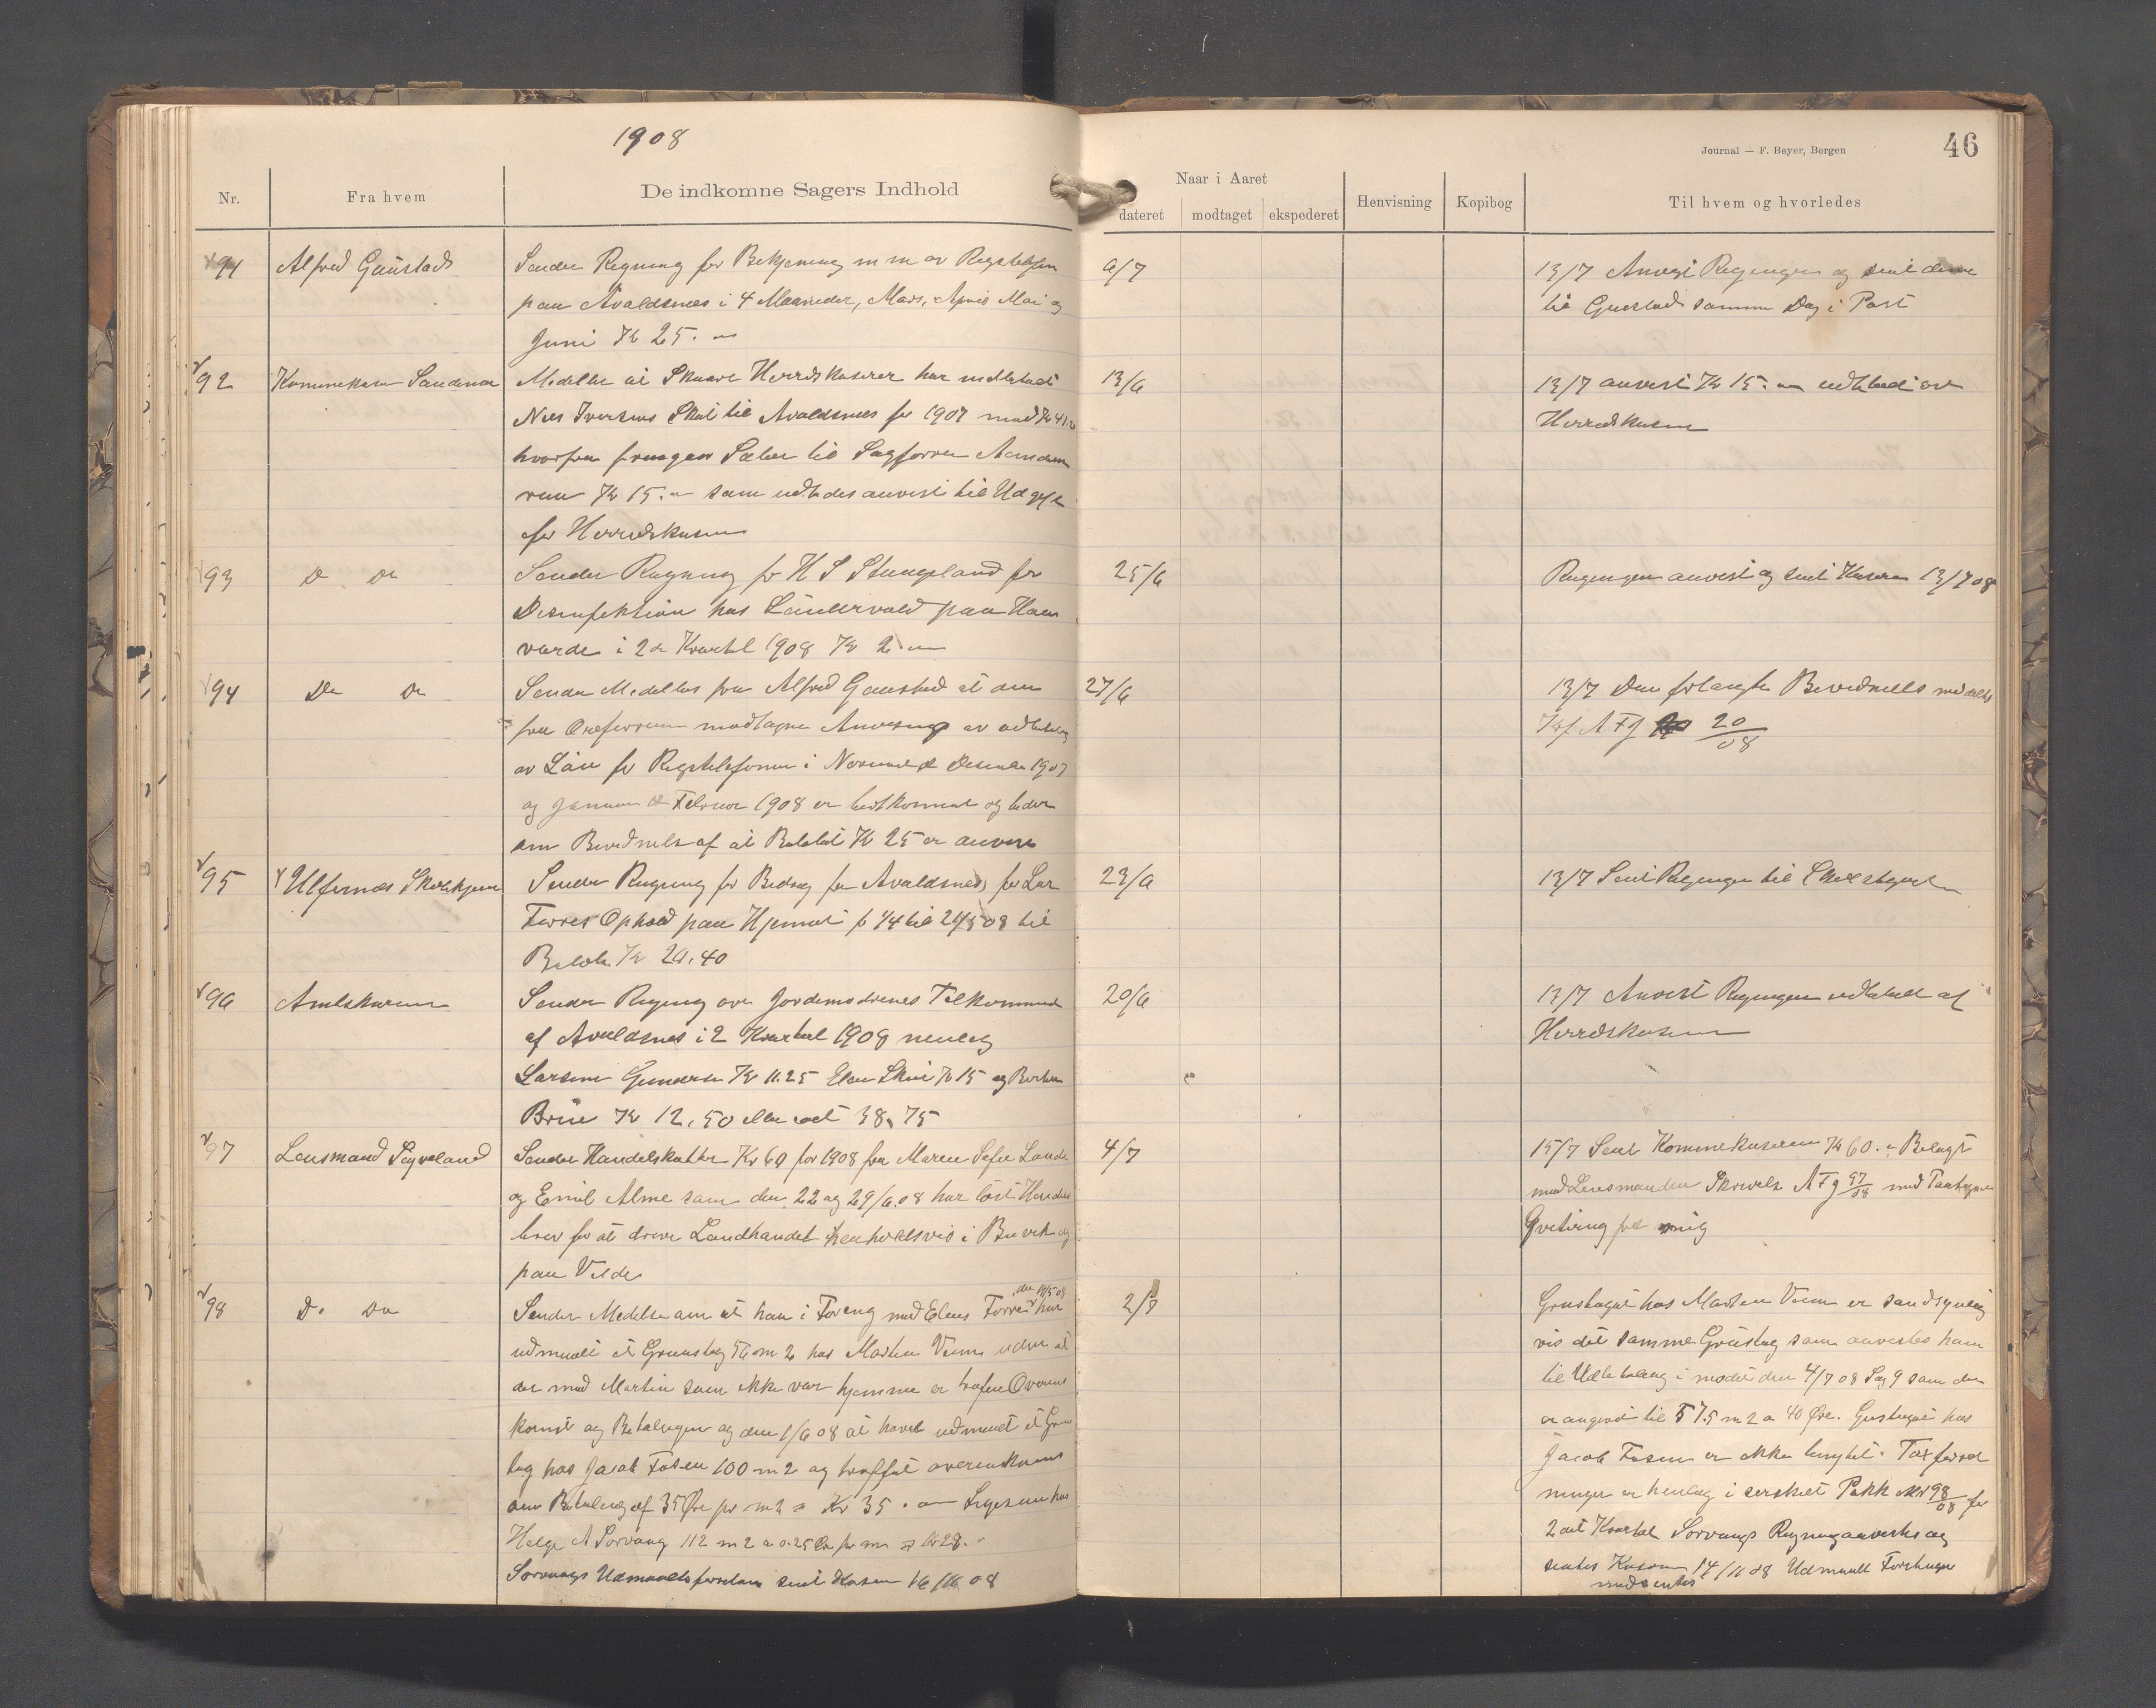 1908
Journal — F. Beyer, Bergen
46
Nr.
Fra hvem
De indkomne Sagers Indhold
Naar i Aaret
dateret
modtaget
ekspederet
Henvisning
Kopibog
Til hvem og hvorledes
91
Alfred Gaustad
Sender Regning for Betjening m m av Rigstelefon
paa Avaldsnes i 4 Maaneder, Mars, April Mai og
Juni Kr 25. –
6/7
13/7 Anvist Regningen og sent denne
til Gaustad samme Dag i Post
92
Meddeler at Skaare Herredskasserer har indbetalt
Nils Iversens Skat til Avaldsnes for 1907 med Kr
hvorfra Salær til Sagfører
Kr 15. – som anvist til Udgift
for Herredskassen
13/6
13/7 anvist Kr 15. – udbetalt av
Herredskassen
93
Do Do
Sender Regning fr H S Stangeland for
Desinfektion hos paa
varde i 2det Kvartal 1908 Kr 2. –
25/6
Regningen anvist og sent Kasserer 13/7 08
94
Do Do
Sender Meddelelse fra Alfred Gaustad at den
fra Ordføreren modtagne Anvisning av
av Løn for Rigstelefonen i November & Desember 1907
og Januar & Februar 1908 er bortkommet og beder
om Bevidnelse af at Beløbet Kr 25 er anvist
27/6
13/7 Den forlangte Bevidnelse meddelt
Kf A F J 20/08
95
Ulfsnes Skolehjem
Sender Regning for Bidrag fra Avaldsnes for Lar
Førres Ophold paa Hjemmet fr 1/4 til 24/5 08 til
Beløb Kr 20.40
23/6
13/7 Sent Regningen til
96
Amtskasseren
Sender Regning over Jordemødrenes Tilkommende
af Avaldsnes i 2 Kvartal 1908 nemlig
Larsine Gundersen Kr 11.25 Elen Skeie Kr 15 og Berta
Kr 12.50 38,75
20/6
13/7 Anvist Regningen udbetalt af
Herredskassen
97
Lensmand Sagveland
Sender Handelsskatter Kr 60 for 1908 fra Maren Sofie Lande
og Emil Alme som den 22 og 29/6.08 har løst Handels
brev for at drive Landhandel henholdsvis i og
paa
4/7
15/7 Sent Kommunekassereren Kr 60. – Belagt
med Lensmandens Skrivelse A F J 97/08 med Paategnet
Kvitering fra mig
98
Do Do
Sender Meddelse om at han i Foreng med Elias Førre har
den
udmaalt et Grustag 56 m2 hos Marten uden at
der med Martin som ikke var hjemme er trafen Overens
komst og Betalingen og den 1/6 08 at have udmaalt et Grus
tag hos Jacob Fosen 100 m2 og truffet overenskomst
om Betaling af 35 Øre pr m2 = Kr 35. – Ligesom hos
Helge A Sørvaag 112 m2 a 0.25 Øre pr m = Kr 28. –
Sørvaags sent Kassen 08
2/7
Grustaget hos Marten er sandsynlig
vis det samme Grustag som anvistes ham
til Udbetaling i mødet den 4/7 08 Sag 9 som der
er angivet til 57.5 m2 a 40 Øre. Grustaget hos
Jacob Fosen er ikke benyttet.
er henlag i særskilt Pakk Nr 98/08 for
2det Kvartal Sørvaags Regning anvistes og
sentes Kasseren 14/11 08 Udmaalt
medsentes